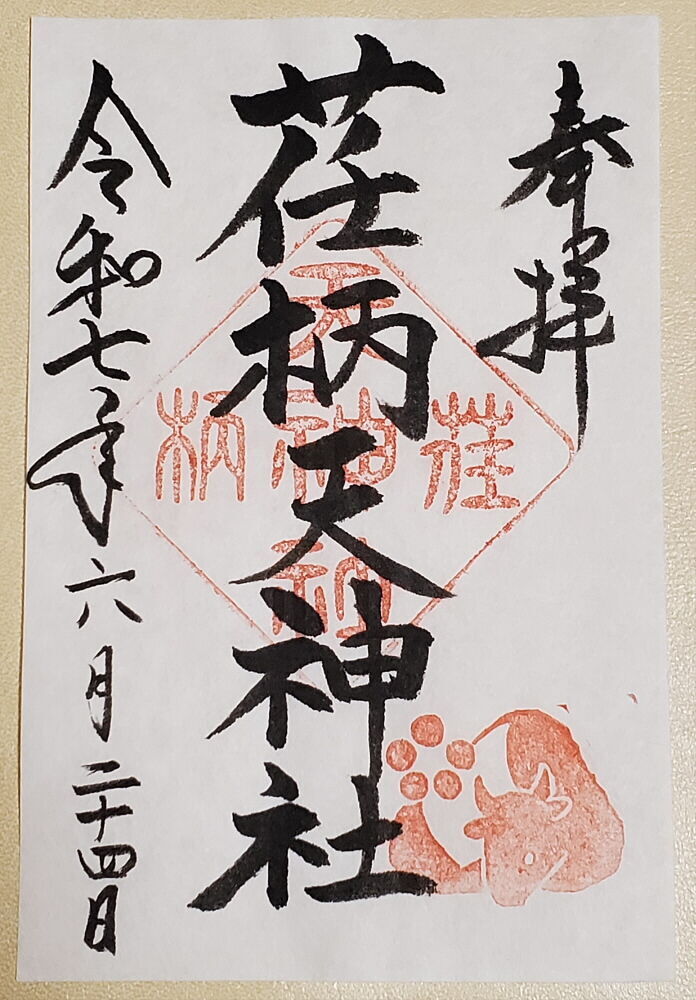 奉拝
荏柄天神社
令和七年六月二十四日
荏柄天神社